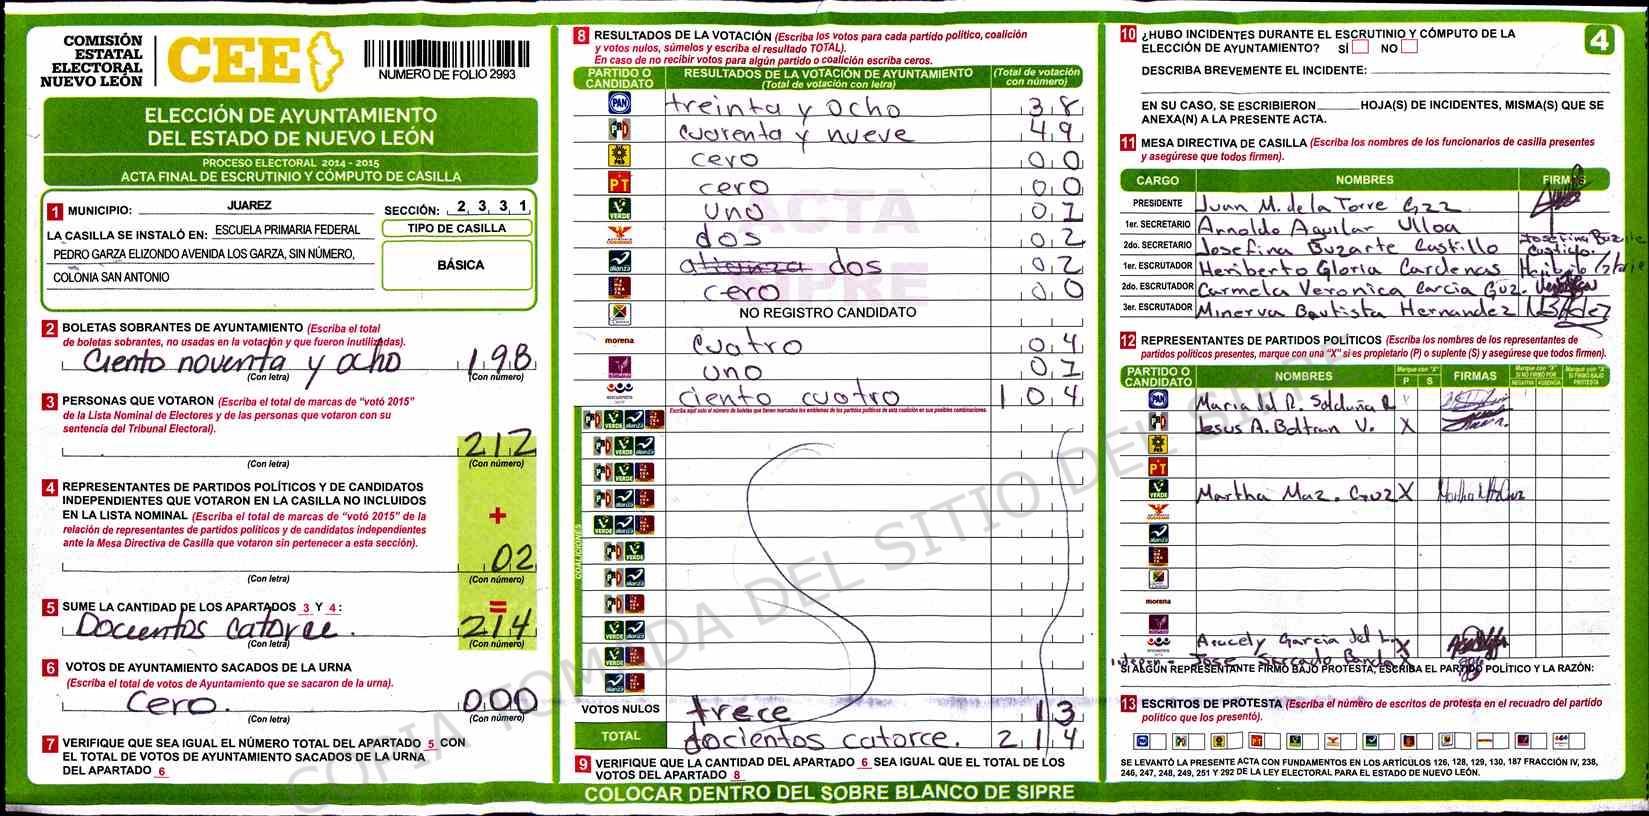 COMISIÓN
ESTATAL
ELECTORAL
NUEVO LEÓN
CEE
NUMERO DE FOLIO 2993
ELECCIÓN DE AYUNTAMIENTO
DEL ESTADO DE NUEVO LEÓN
PROCESO ELECTORAL 2014 - 2015
ACTA FINAL DE ESCRUTINIO Y CÓMPUTO DE CASILLA
1 MUNICIPIO: JUAREZ SECCIÓN: 2 3 3 1
LA CASILLA SE INSTALÓ EN: ESCUELA PRIMARIA FEDERAL
PEDRO GARZA ELIZONDO AVENIDA LOS GARZA, SIN NÚMERO,
COLONIA SAN ANTONIO
TIPO DE CASILLA
BÁSICA
2 BOLETAS SOBRANTES DE AYUNTAMIENTO (Escriba el total
de boletas sobrantes, no usadas en la votación y que fueron inutilizadas).
Ciento noventa y ocho 198
(Con letra) (Con número)
3 PERSONAS QUE VOTARON (Escriba el total de marcas de “votó 2015”
de la Lista Nominal de Electores y de las personas que votaron con su
sentencia del Tribunal Electoral).
212
(Con letra) (Con número)
4 REPRESENTANTES DE PARTIDOS POLÍTICOS Y DE CANDIDATOS
INDEPENDIENTES QUE VOTARON EN LA CASILLA NO INCLUIDOS
EN LA LISTA NOMINAL (Escriba el total de marcas de “votó 2015” de la
relación de representantes de partidos politicos y de candidatos independientes
ante la Mesa Directiva de Casilla que votaron sin pertenecer a esta sección).
+
02
(Con letra) (Con número)
=
5 SUME LA CANTIDAD DE LOS APARTADOS 3 Y 4:
Docientos catorce. 214
(Con letra) (Con número)
6 VOTOS DE AYUNTAMIENTO SACADOS DE LA URNA
(Escriba el total de votos de Ayuntamiento que se sacaron de la urna).
Cero. 000
(Con letra) (Con número)
7 VERIFIQUE QUE SEA IGUAL EL NÚMERO TOTAL DEL APARTADO 5 CON
EL TOTAL DE VOTOS DE AYUNTAMIENTO SACADOS DE LA URNA
DEL APARTADO 6
8 RESULTADOS DE LA VOTACIÓN (Escriba los votos para cada partido político, coalición
y votos nulos, súmelos y escriba el resultado TOTAL).
En caso de no recibir votos para algún partido o coalición escriba ceros.
PARTIDO O CANDIDATO
RESULTADOS DE LA VOTACIÓN DE AYUNTAMIENTO
(Total de votación con letra)
(Total de votación con número)
PAN treinta y ocho 38
PRI cuarenta y nueve 49
PRD cero 00
PT cero 00
VERDE uno 01
dos 02
alianza alianza dos 02
cero 00
NO REGISTRO CANDIDATO
morena cuatro 04
uno 01
encuentro ciento cuatro 104
Escriba aquí solo el número de boletas que tienen marcados los emblemas de los partidos políticos de esta coalición en sus posibles combinaciones.
COALICIONES
VOTOS NULOS trece 13
TOTAL docientos catorce. 214
9 VERIFIQUE QUE LA CANTIDAD DEL APARTADO 6 SEA IGUAL QUE EL TOTAL DE LOS
VOTOS DEL APARTADO 8
COLOCAR DENTRO DEL SOBRE BLANCO DE SIPRE
ACTA
SIPRE
COPIA TOMADA DEL SITIO DEL SIPRE
10 ¿HUBO INCIDENTES DURANTE EL ESCRUTINIO Y CÓMPUTO DE LA
ELECCIÓN DE AYUNTAMIENTO? SÍ NO
4
DESCRIBA BREVEMENTE EL INCIDENTE:
EN SU CASO, SE ESCRIBIERON HOJA(S) DE INCIDENTES, MISMA(S) QUE SE
ANEXA(N) A LA PRESENTE ACTA.
11 MESA DIRECTIVA DE CASILLA (Escriba los nombres de los funcionarios de casilla presentes
y asegúrese que todos firmen).
CARGO NOMBRES FIRMAS
PRESIDENTE Juan M. de la Torre Gzz
1er. SECRETARIO Arnoldo Aguilar Ulloa
2do. SECRETARIO Josefina Buzarte Castillo
1er. ESCRUTADOR Heriberto Gloria Cardenas
2do. ESCRUTADOR Carmela Veronica Garcia Guz.
3er. ESCRUTADOR Minerva Bautista Hernandez
12 REPRESENTANTES DE PARTIDOS POLÍTICOS (Escriba los nombres de los representantes de
partidos políticos presentes, marque con una “X” si es propietario (P) o suplente (S) y asegúrese que todos firmen).
PARTIDO O CANDIDATO NOMBRES P S FIRMAS
PAN Maria del R. Solduña R
PRI Jesus A. Beltran V. X
PRD
PT
VERDE Martha Maz. Guz X
alianza
morena
Aracely Garcia del X
Indepen. Jose
SI ALGÚN REPRESENTANTE FIRMÓ BAJO PROTESTA, ESCRIBA EL PARTIDO POLÍTICO Y LA RAZÓN:
13 ESCRITOS DE PROTESTA (Escriba el número de escritos de protesta en el recuadro del partido
político que los presentó).
SE LEVANTÓ LA PRESENTE ACTA CON FUNDAMENTOS EN LOS ARTÍCULOS 126, 128, 129, 130, 187 FRACCIÓN IV, 238,
246, 247, 248, 249, 251 Y 292 DE LA LEY ELECTORAL PARA EL ESTADO DE NUEVO LEÓN.